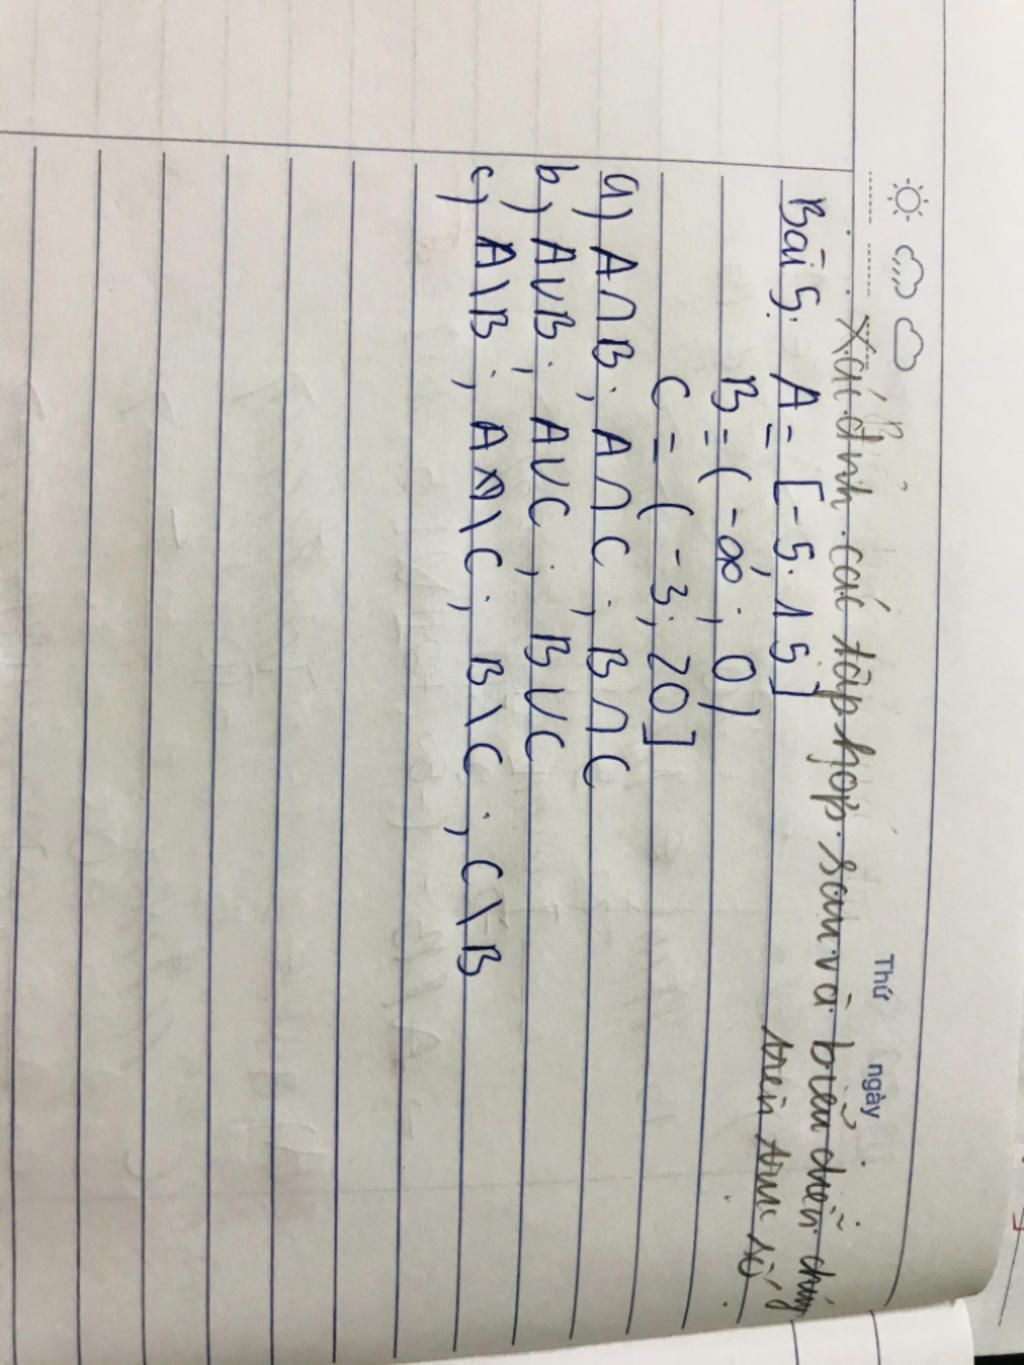 Thứ ngày
Xác định các tập hợp sau và biểu diễn chúng
trên trục số
Bài 5. A = [-5; 15]
B = (-∞; 0)
C = (-3; 20]
a) A∩B; A∩C; B∩C
b) A∪B; A∪C; B∪C
c) A\B; A\C; B\C; C\B